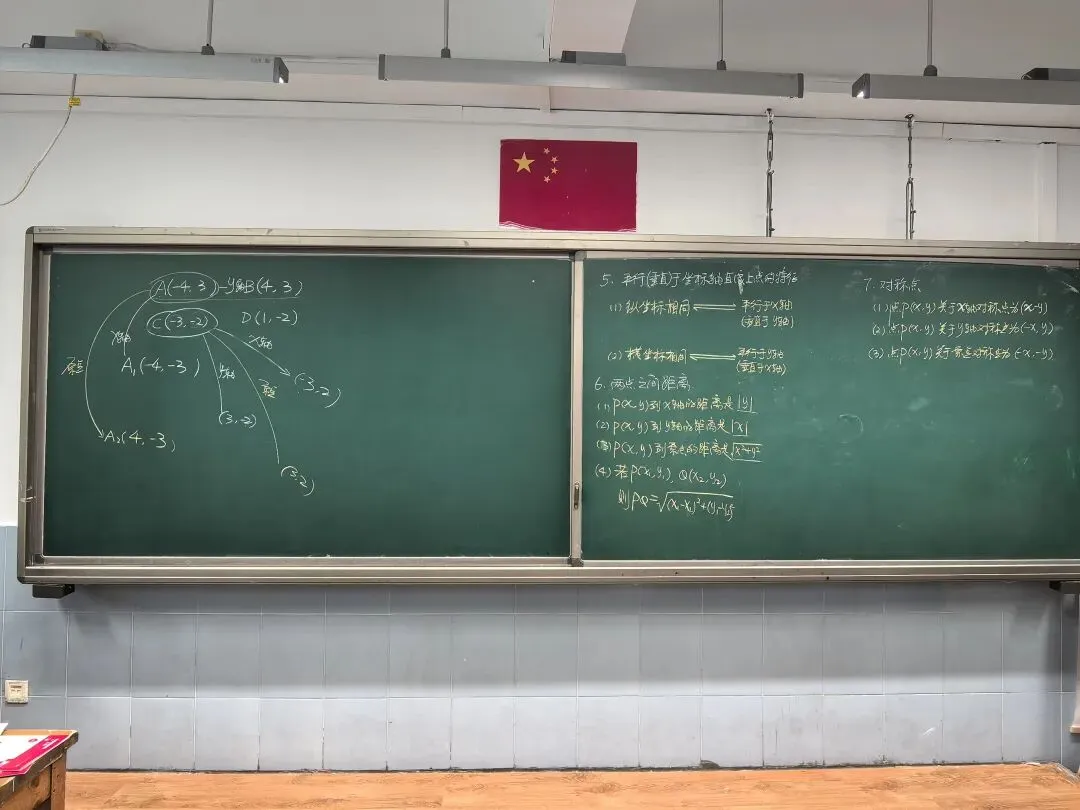 A(-4,3) -y轴 B(4,3)
C(-3,-2) D(1,-2)
x轴
x轴
原点
A₁(-4,-3)
y轴
原点
(-3,2)
(3,-2)
A₂(4,-3)
(3,2)
5、平行(垂直)于坐标轴直线上点的特征
(1)纵坐标相同 ⟺ 平行于x轴
(垂直于y轴)
(2)横坐标相同 ⟺ 平行于y轴
(垂直于x轴)
6、两点之间距离
(1)P(x,y)到x轴的距离是|y|
(2)P(x,y)到y轴的距离是|x|
(3)P(x,y)到原点的距离是√x²+y²
(4)若P(x₁,y₁), Q(x₂,y₂)
则PQ=√(x₁-x₂)²+(y₁-y₂)²
7、对称点
(1)点P(x,y)关于x轴对称点为(x,-y)
(2)点P(x,y)关于y轴对称点为(-x,y)
(3)点P(x,y)关于原点对称点为(-x,-y)